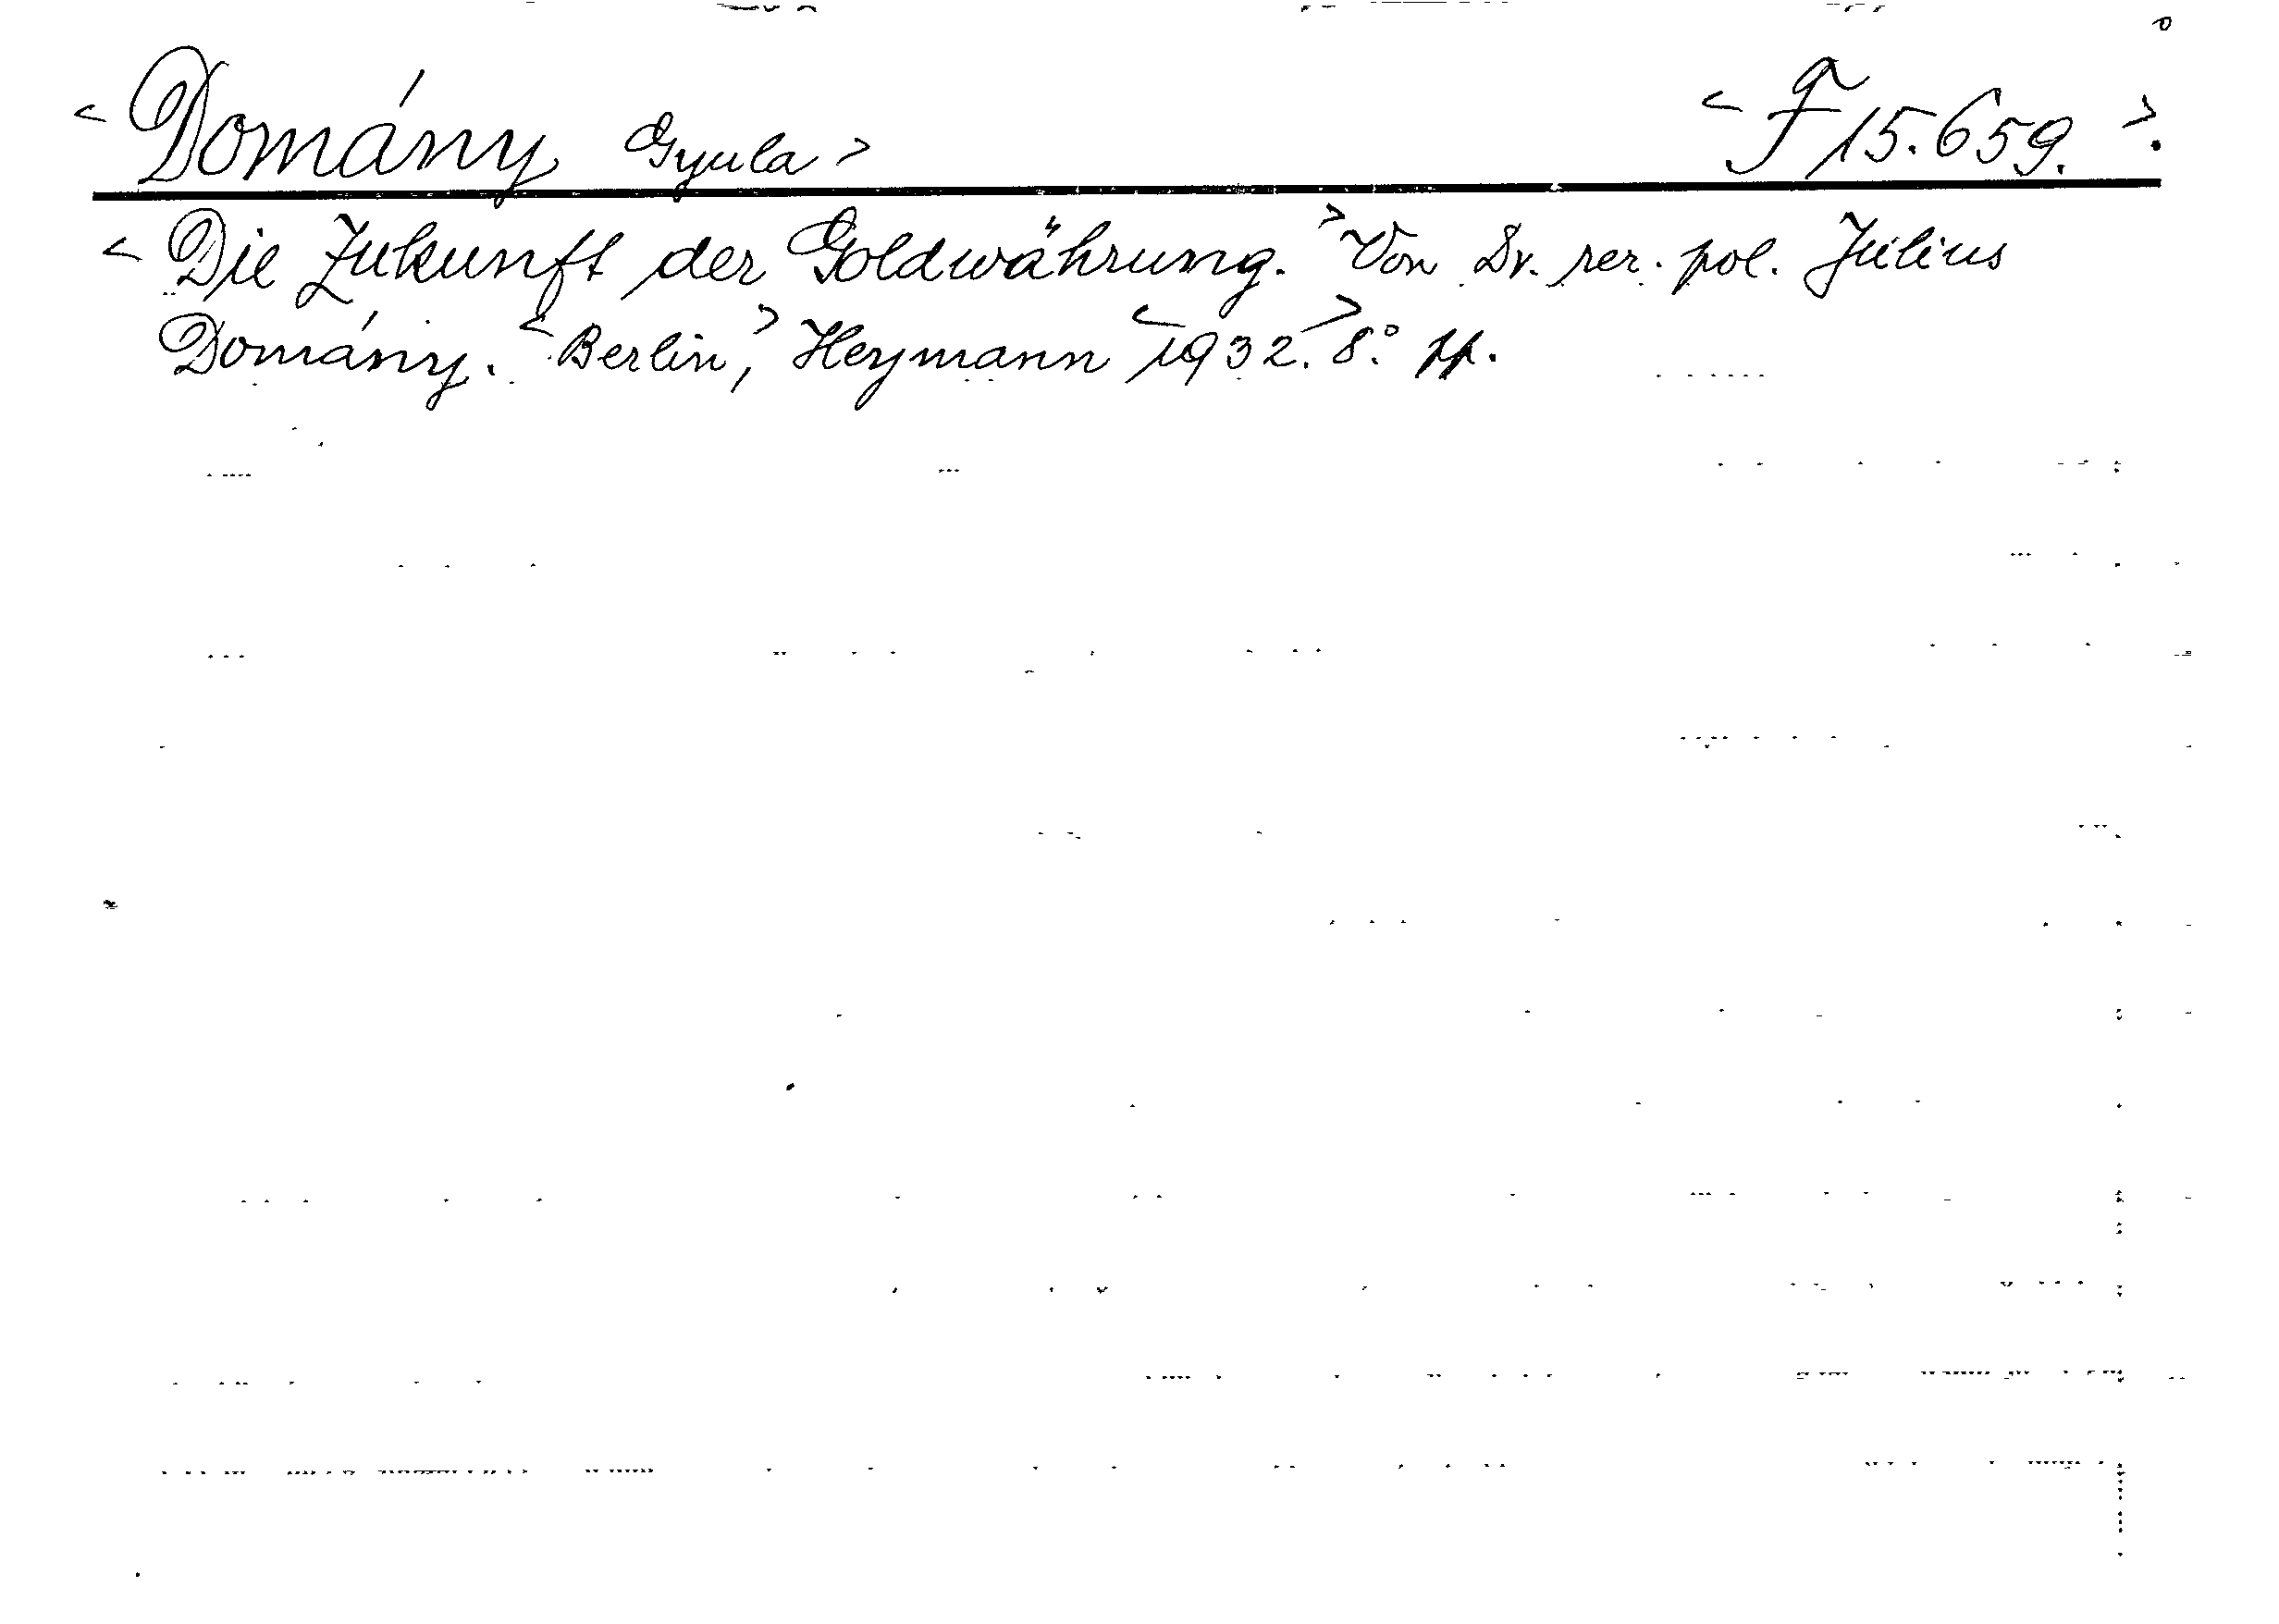 < Domány Gyula > < F 15.659. >.
< Die Zukunft der Goldwährung. > Von Dr. rer. pol. Julius
Domány. < Berlin, > Heymann < 1932. > 8.° pp.